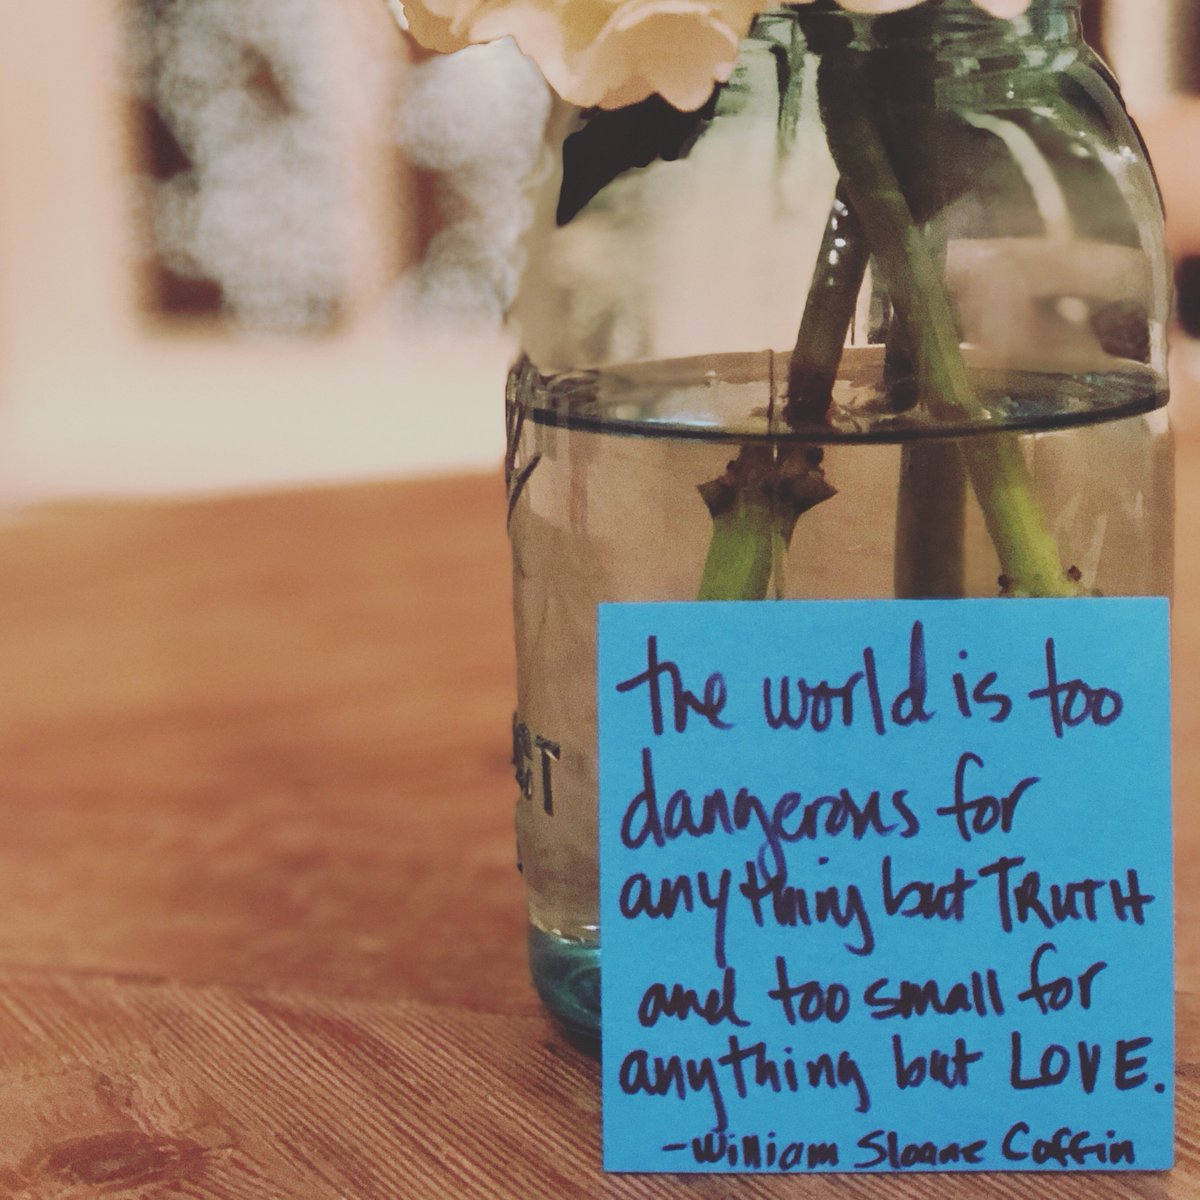 the world is too
dangerous for
anything but TRUTH
and too small for
anything but LOVE.
-William Sloane Coffin